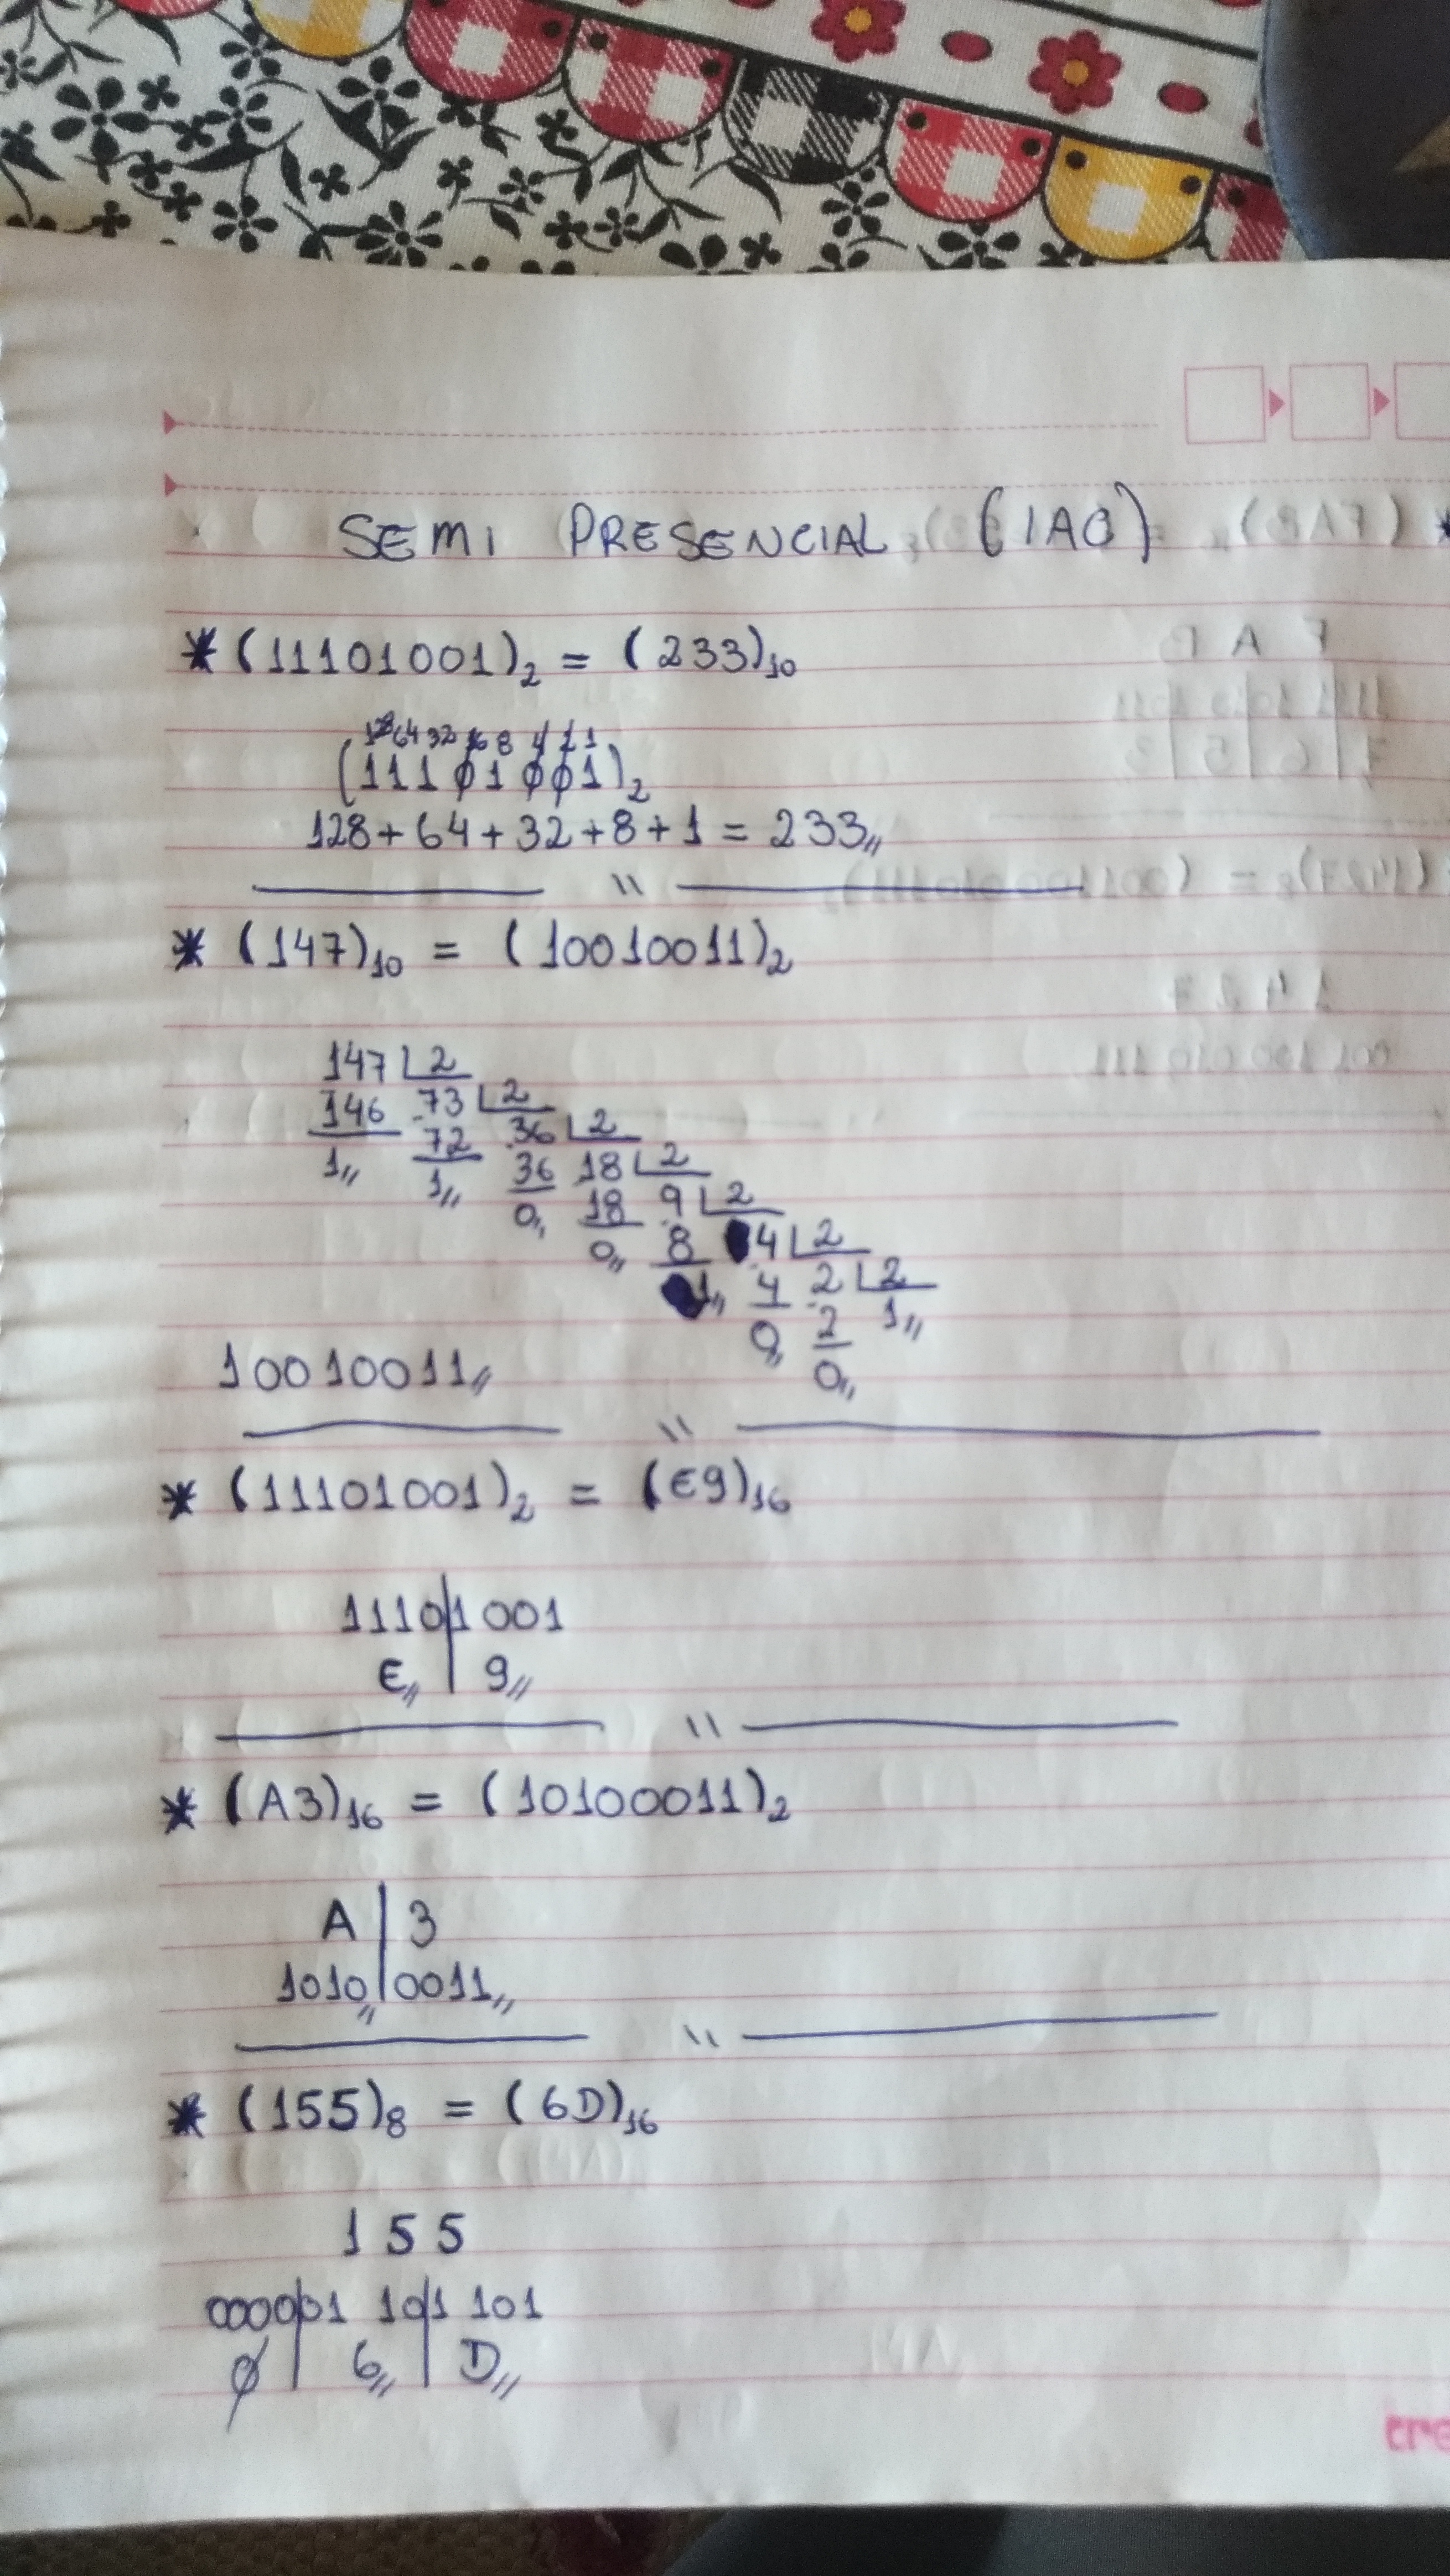 SEMI PRESENCIAL (IAC)
* (11101001)2 = (233)10
128 64 32 16 8 4 2 1
(11101001)2
128+64+32+8+1 = 233,,
\\
* (147)10 = (10010011)2
147 2
146 73 2
1,, 72 36 2
1,, 36 18 2
0,, 18 9 2
0,, 8 4 2
1,, 4 2 2
0,, 2 1,,
0,,
10010011,,
\\
* (11101001)2 = (E9)16
1110|1001
E,, | 9,,
\\
* (A3)16 = (10100011)2
A | 3
1010,,|0011,,
\\
* (155)8 = (6D)16
1 5 5
0000|01 10|1 101
0 | 6,, | D,,
tre